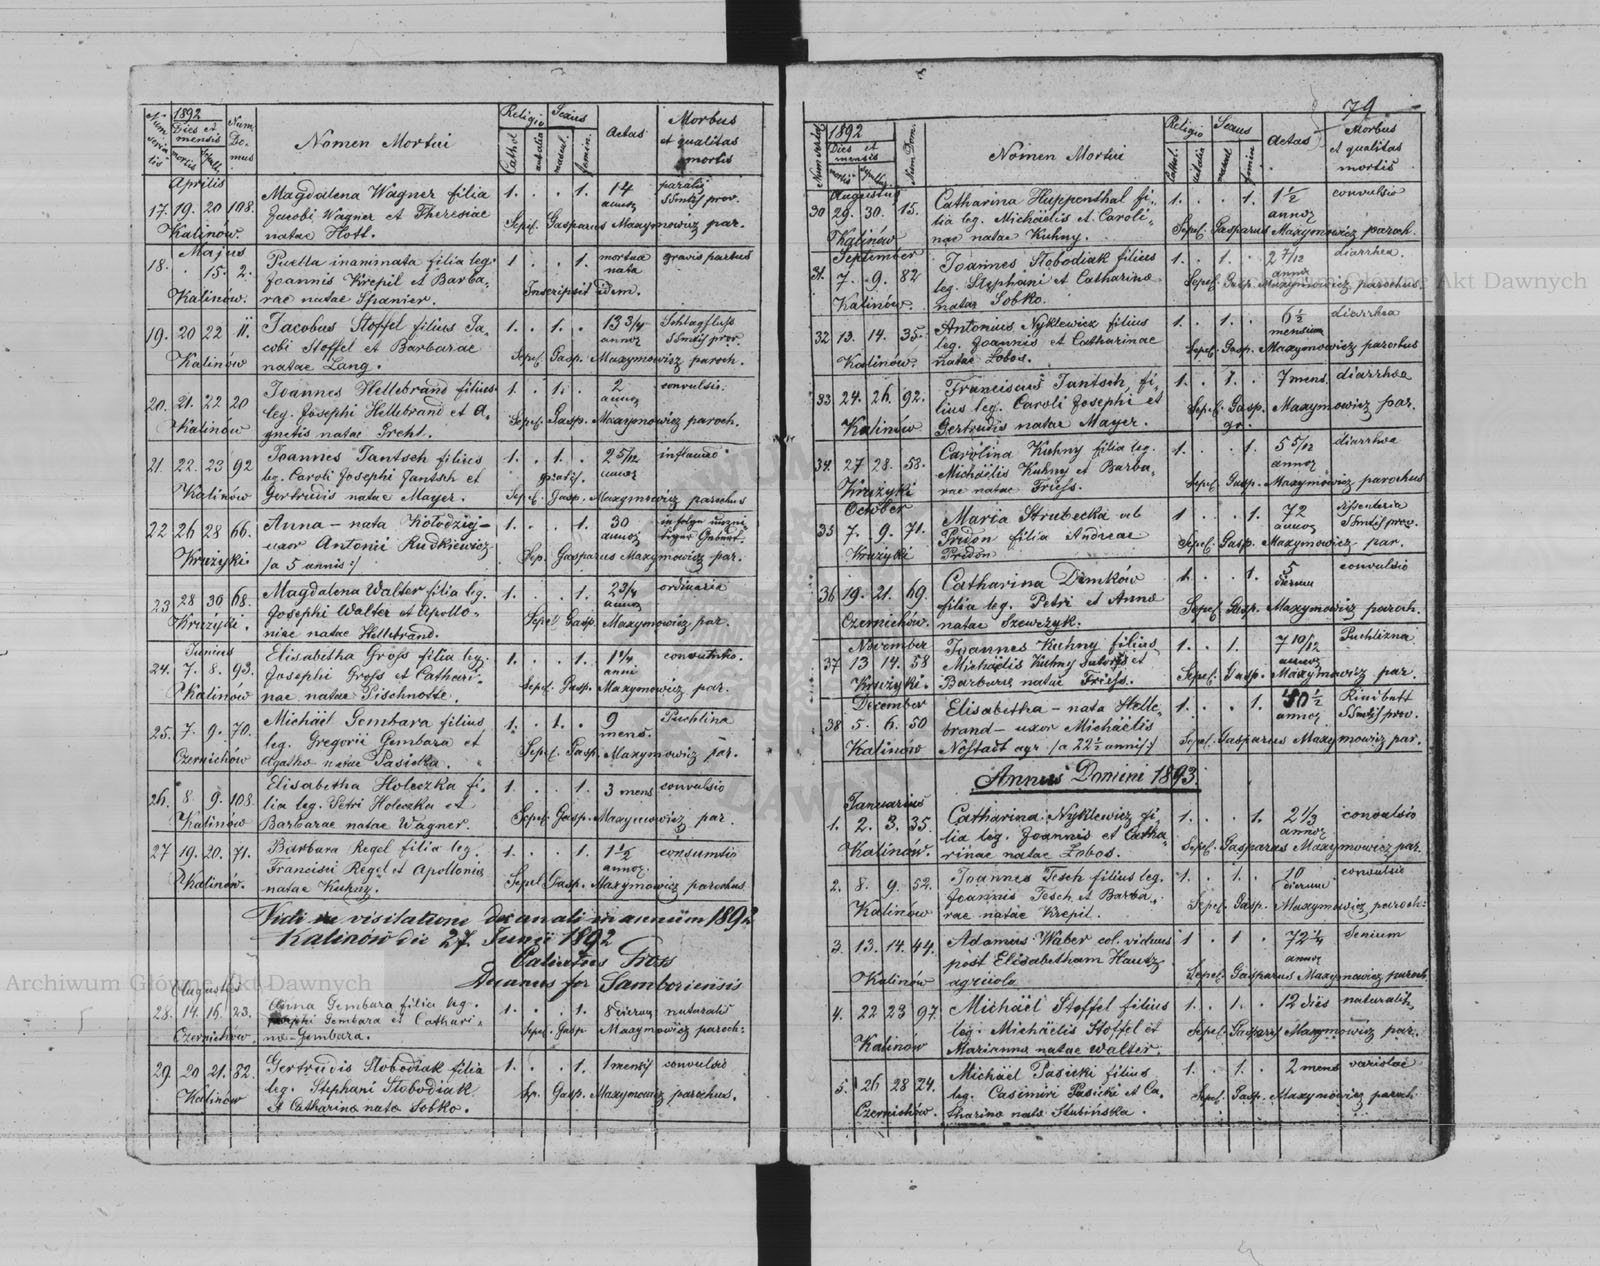 Num. serialis 1892 Dies et mensis mortis sepult. Num. Domus Nomen Mortui Religio Cathol. autalia Sexus mascul. femin. Aetas Morbus et qualitas mortis
Aprilis
17. 19. 20 108. Magdalena Wagner filia 1. . . 1. 14 annor.
Jacobi Wagner et Theresiae
Kalinów natae Hott. Sepel. Gasparus Maxymowicz par.
Majus
18. . 15. 2. Puella innominata filia leg. 1. . . 1. mortua nata gravis partus
Joannis Krepil et Barba-
Kalinów. rae natae Spanier. Inscripsit idem.
19. 20 22 11. Jacobus Stoffel filius Ja- 1. . 1. . 13 3/4 annor. Schlagfluss
cobi Stoffel et Barbarae
Kalinów natae Lang. Sepel. Gasp. Maxymowicz paroch.
20. 21. 22 20 Joannes Hellebrand filius 1. . 1. . 2 annor convulsis.
leg. Josephi Hellebrand et A-
Kalinów gnetis natae Greht. Sepel. Gasp. Maxymowicz paroch.
21. 22. 23 92 Joannes Jantsch filius 1. . 1. . 2 5/12 annor
leg. Caroli Josephi Jantsch et gratis.
Kalinów Gertrudis natae Mayer. Sepel. Gasp. Maxymowicz parochus
22 26 28 66. Anna - nata Kołodziej- 1. . . 1. 30 annor in folge
uxor Antonii Rudkiewicz
Krużyki /a 5 annis/ Sep. Gasparus Maxymowicz par.
23 28 30 68. Magdalena Walter filia leg. 1. . . 1. 2 3/4 annor ordinaria
Josephi Walter et Apollo-
Krużyki. niae natae Hellebrand. Sepel. Gasp. Maxymowicz par.
Junius
24. 7. 8. 93. Elisabetha Gross filia leg. 1. . . 1. 1 1/4 anni
Josephi Gross et Cathari-
Kalinów nae natae Pischnotte. Sepel. Gasp. Maxymowicz par.
25. 7. 9. 70. Michäel Gembara filius 1. . 1. . 9 mens. Puchlina
leg. Gregorii Gembara et
Czernichów Agatha natae Pasicka. Sepel. Gasp. Maxymowicz par.
26. 8. 9. 108. Elisabetha Holeczka fi- 1. . . 1. 3 mens convulsio
lia leg. Petri Holeczka et
Kalinów Barbarae natae Wagner. Sepel. Gasp. Maxymowicz par.
27 19. 20. 71. Barbara Regel filia leg. 1. . . 1. 1 1/2 annor. consumtio
Francisci Regel et Apolloniae
Kalinów. natae Kuhny. Sepel Gasp. Maxymowicz parochus
Vidi in visitatione decanali in annum 1892
Kalinów die 27 Junii 1892
Gross
Decanus for Samboriensis
Augustus
28. 14. 16. 23. Anna Gembara filia leg. 1. . . 1. 8 dierum naturalis
Josephi Gembara et Cathari-
Czernichów. na - Gembara. Sepel. Gasp. Maxymowicz paroch:
29. 20 21. 82. Gertrudis Slobodiak filia 1. . . 1. 1 mensis convulsio
leg. Stephani Slobodiak
Kalinów et Catharina nata Sobko. Sep. Gasp. Maxymowicz parochus.
79
Num serial 1892 Dies et mensis mortis sepultus Num Dom. Nomen Mortui Religio Cathol. autalia Sexus mascul femin Aetas Morbus et qualitas mortis
Augustus
30 29. 30. 15. Catharina Huppenthal fi- 1. . . 1. 1 1/2 annor convulsio
lia leg. Michäelis et Caroli-
Kalinów nae natae Kuhny. Sepel. Gasparus Maxymowicz paroch.
September
31. 7. 9. 82 Joannes Slobodiak filius 1. . 1. . 2 7/12 annor diarrhea.
leg. Stephani et Catharina
Kalinów. natae Sobko. Sepel. Gasp. Maxymowicz parochus.
32 13. 14. 35. Antonius Nyklewicz filius 1. . 1. . 6 1/2 mensium diarrhea
leg. Joannis et Catharinae
Kalinów. natae Lobos. Sepel. Gasp. Maxymowicz parochus
33 24. 26. 92. Franciscus Jantsch fi- 1. . 1. . 7 mens. diarrhea
lius leg. Caroli Josephi et
Kalinów Gertrudis natae Mayer. Sepel. Gasp. Maxymowicz par.
gr.
34. 27 28. 58. Carolina Kuhny filia leg. 1. . . 1. 5 5/12 annor diarrhea
Michäelis Kuhny et Barba-
Krużyki rae natae Friess. Sepel. Gasp. Maxymowicz parochus
October
35 7. 9. 71. Maria Strubecka vel 1 . . 1. 72 annor
Predon filia Andreae
Krużyki Predon Sepel. Gasp. Maxymowicz par.
36 19. 21. 69. Catharina Dimków 1. . . 1. 5 dierum convulsio
filia leg. Petri et Anna
Czernichów. natae Szewczyk. Sepel. Gasp. Maxymowicz paroch.
November
37 13 14. 58 Joannes Kuhny filius 1. . 1. 7 10/12 annor Puchlizna
Michäelis Kuhny sutoris et
Krużyki. Barbara natae Friess. Sepel. Gasp. Maxymowicz par.
December
38 5. 6. 50 Elisabetha - nata Helle- 1. . . 1. 40 1/2 annor
brand - uxor Michäelis
Kalinów Nostadt agr. /a 22 1/2 annis/ Sepel. Gasparus Maxymowicz par.
Annus Domini 1893.
Januarius
1. 2. 3. 35. Catharina Nyklewicz fi- 1. . . 1. 2 1/3 annor convulsio
lia leg. Joannis et Catha-
Kalinów. rinae natae Lobos. Sepel. Gasparus Maxymowicz par.
2. 8. 9. 52. Joannes Tesch filius leg. 1. . 1. . 10 dierum convulsio
Joannis Tesch et Barba-
Kalinów rae natae Krepil. Sepel. Gasp. Maxymowicz paroch:
3. 13. 14. 44. Adamus Waber col. viduus 1 . 1 . 72 1/4 annor Senium
post Elisabetham Hautz
Kalinów agricola Sepel. Gasparus Maxymowicz paroch
4. 22 23 97. Michäel Stoffel filius 1. . 1. . 12 dies naturalis
leg. Michäelis Stoffel et
Kalinów Marianna natae Walter. Sepel. Gasparus Maxymowicz par.
5. 26 28 24. Michäel Pasicki filius 1. . 1. . 2 mens variolae
leg. Casimiri Pasicki et Ca-
Czernichów. tharina nata Stubińska. Sepel. Gasp. Maxymowicz paroch
Archiwum Główne Akt Dawnych
Archiwum Główne Akt Dawnych